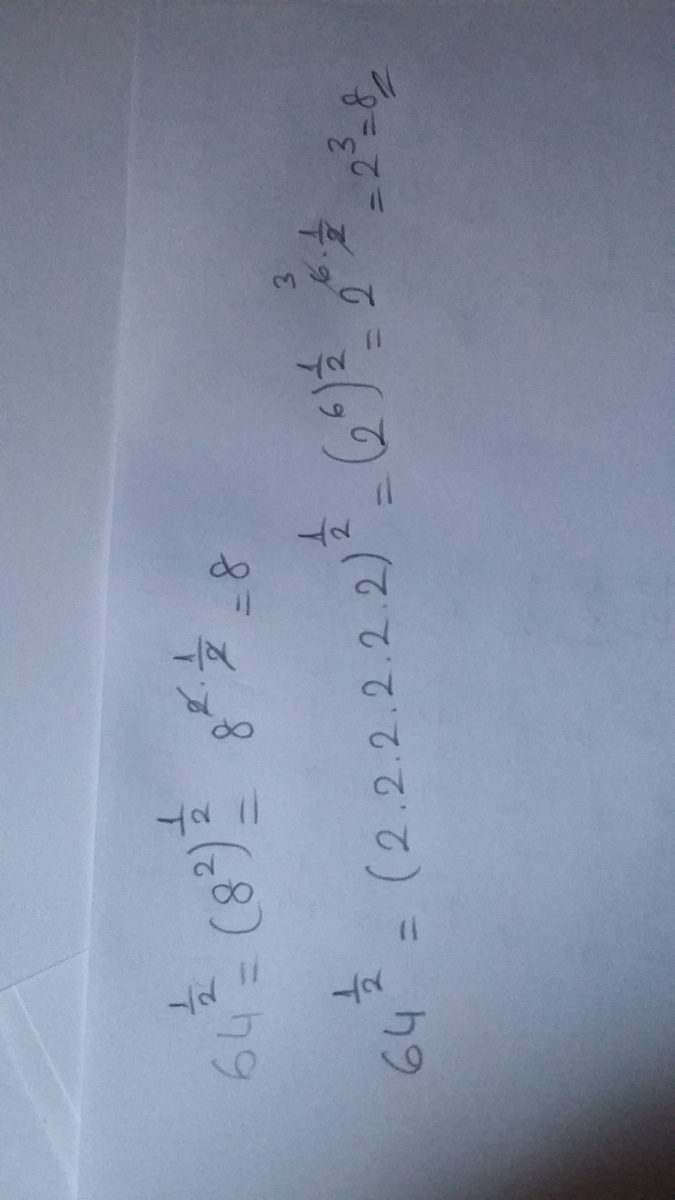 64^{1/2} = (8^2)^{1/2} = 8^{2·1/2} = 8
64^{1/2} = (2.2.2.2.2.2)^{1/2} = (2^6)^{1/2} = 2^{3 6·1/2} = 2^3 = 8